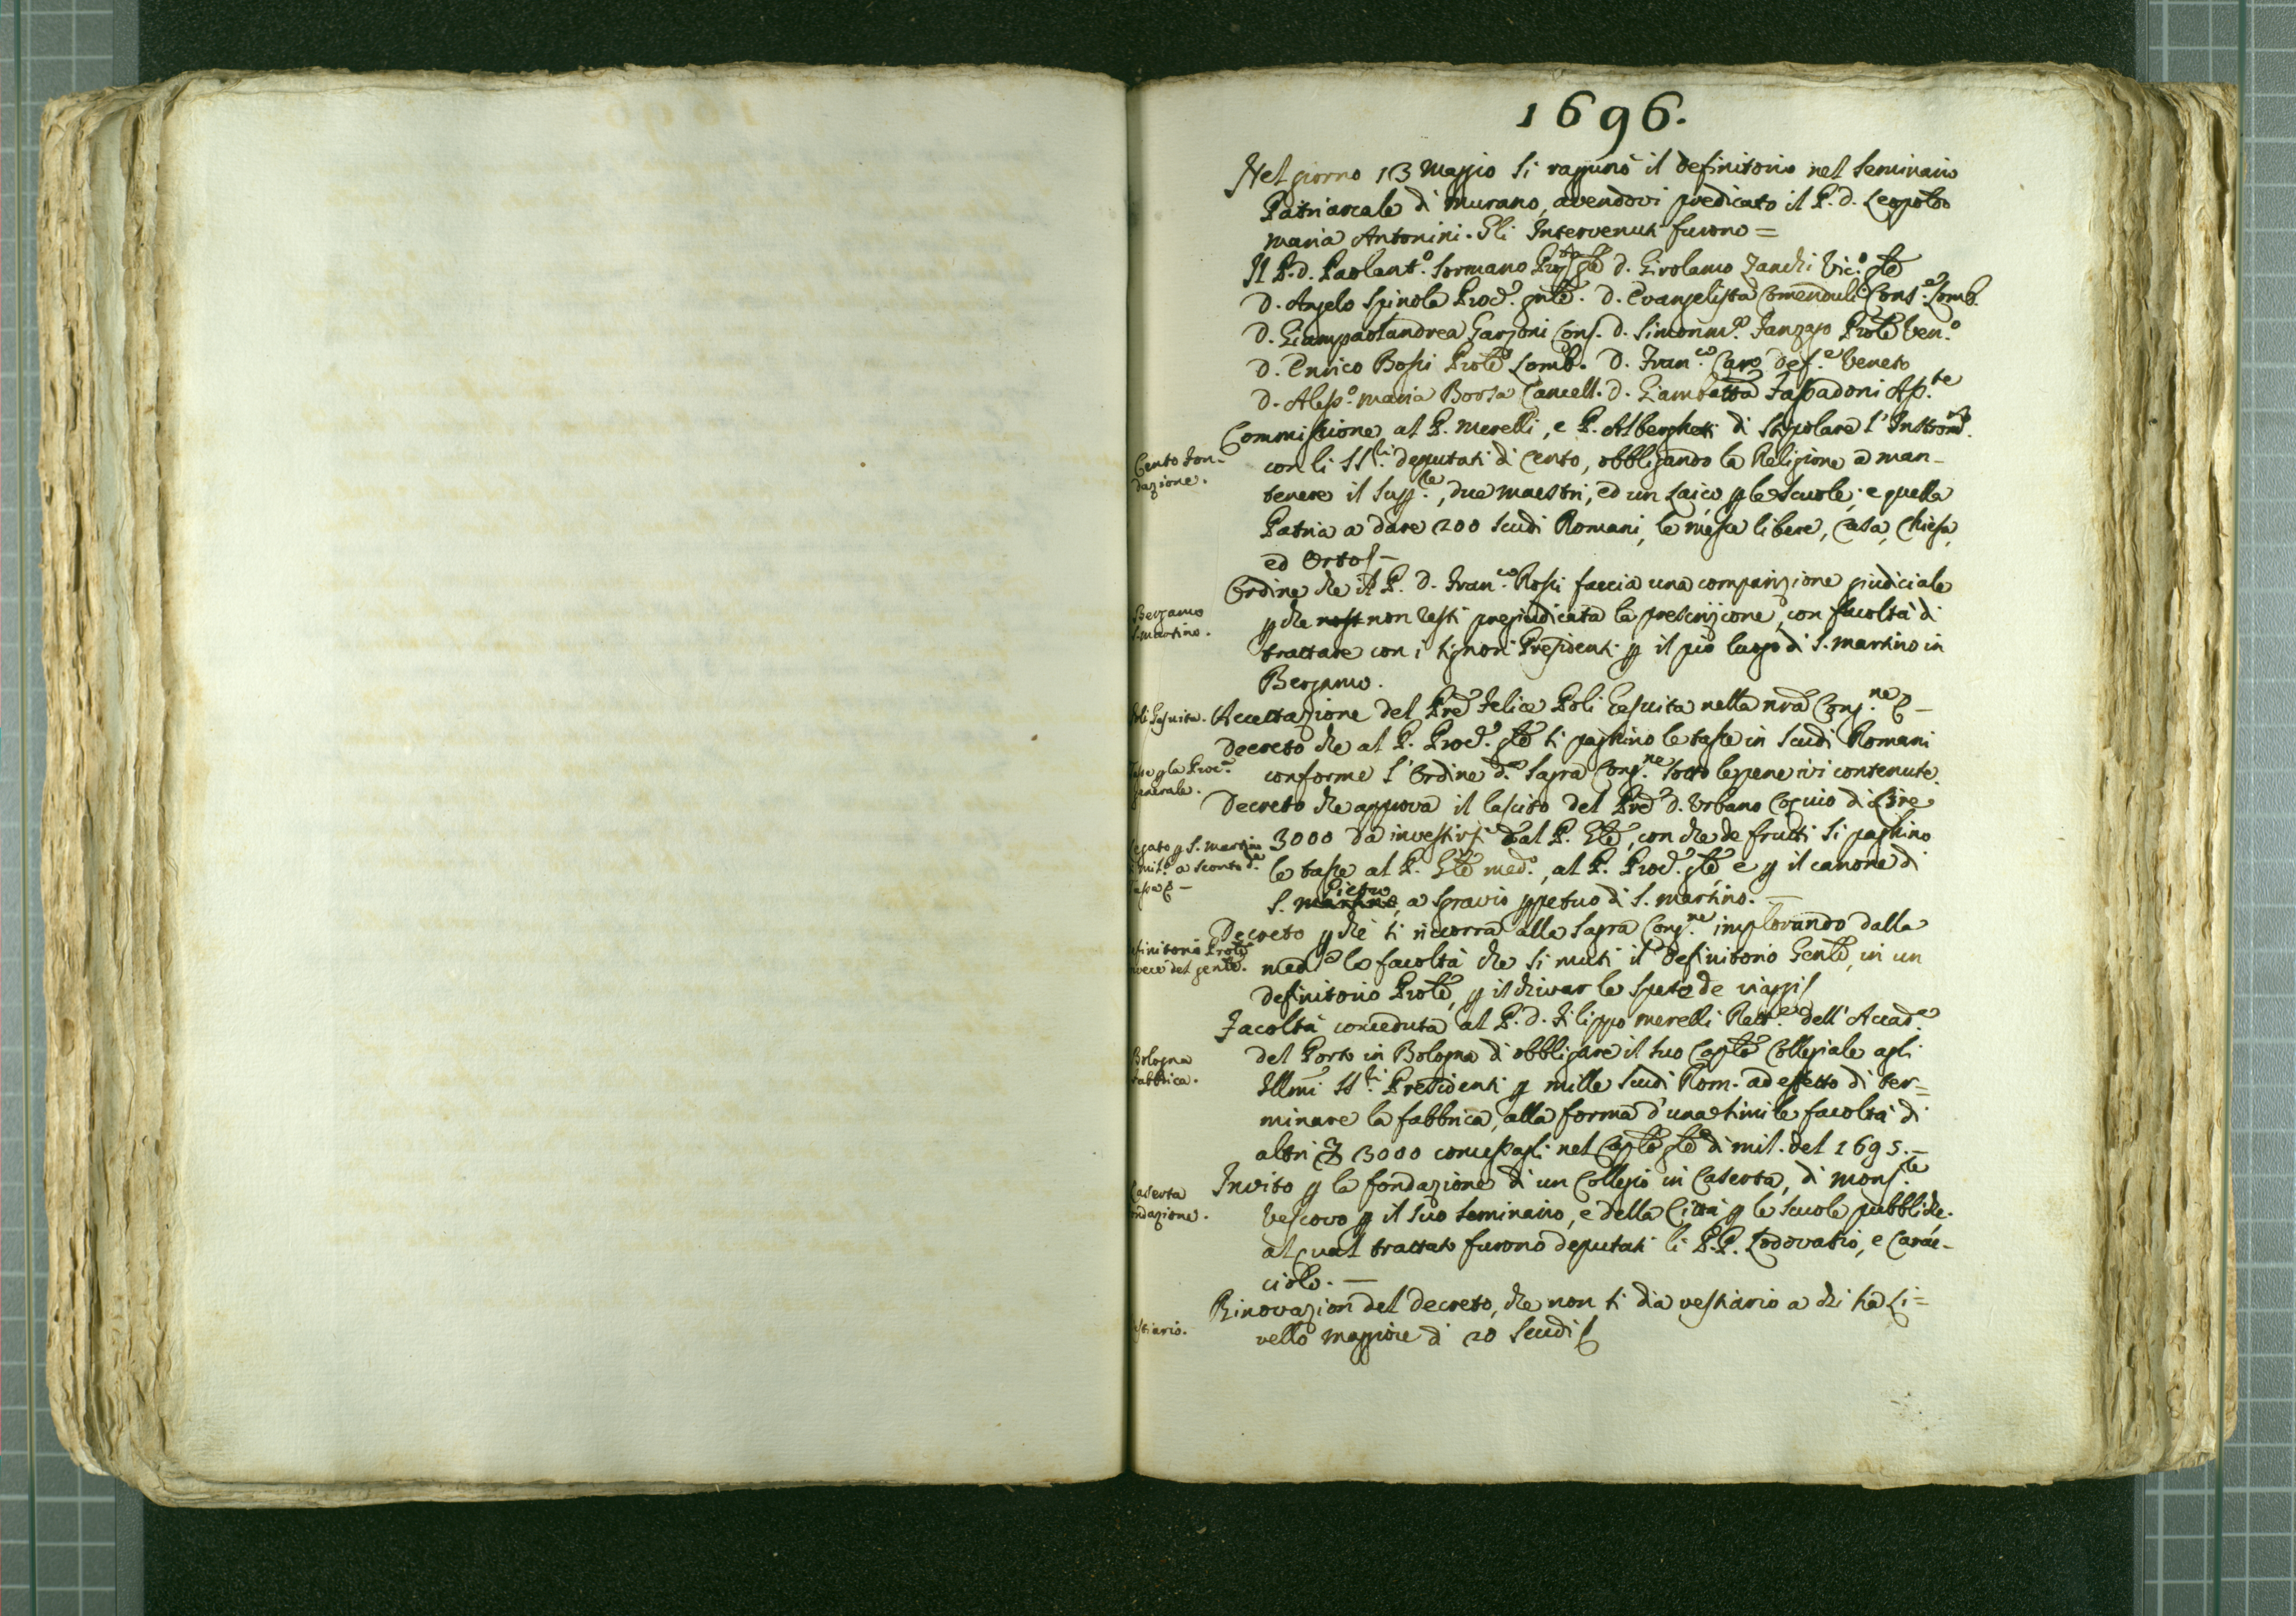 1696.
Nel giorno 13 Maggio si ragunò il definitorio nel Seminario
Patriarcale di Murano, avendovi predicato il P. D. Leopoldo
Maria Antonini. Gli Intervenuti furono =
Il P. D. Paolant.º Sormano D. Girolamo Zanchi Vic.º Gle
D. Angelo Spinola Proc.e gnle. D. Evangelista Comenduli Cons.e Lomb.
D. Giampaolandrea Garzoni Cons. D. Simonm.ª Fanzago Prole Ven.º
D. Enrico Bossi Prole Lomb. D. Fran.co Caro def.e Veneto
D. Aless.º Maria Borsa Cancell. D. Giambatta Fassadoni Ass.te
Cento Fon-
dazione.
Commissione al P. Merelli, e P. Alberghetti di stipolare l'Instrom.to
con li SS.ri deputati di Cento, obbligando la Religione a man-
tenere il Supp.le, due maestri, ed un Laico p le Scuole; e quella
Patria a dare 200 scudi Romani, le messe libere, Casa, Chiesa,
ed Orto
Bergamo
S. Martino.
Ordine che il P. D. Fran.co Rossi faccia una comparizione giudiciale
p che non resti pregiudicata la prescrizione, con facoltà di
trattare con i Signori Presidenti p il pio luogo di S. Martino in
Bergamo.
Poli Gesuita.
Accettazione del Pre Felice Poli Gesuita nella nra Cong.ne
Tasse p la Proc.a
Generale.
Decreto che al P. Proc.e Gle si paghino le tasse in scudi Romani
conforme l'Ordine d.a Sagra Cong.ne sotto le pene ivi contenute.
Legato p S. Martino
di Mil.º a sconto d.e
Tasse
Decreto che approva il lascito del Pre D. Urbano Coquio di Lire
3000 da investirsi dal P. Gle, con che de frutti si paghino
le tasse al P. Gle med.º, al P. Proc.e Gle, e p il canone di
S. Martino Pietro, a sgravio ppetuo di S. Martino. —
Definitorio Prole
invece del genle.
Decreto p che si ricorra alla Sagra Cong.ne implorando dalla
med.a la facoltà che si muti il Definitorio Genle, in un
definitorio Prole, p ischivar le spese de viaggi
Bologna
Fabbrica.
Facoltà conceduta al P. D. Filippo Merelli Rett.e dell'Accad.a
del Porto in Bologna di obbligare il suo Caple Collegiale agli
Illmi SS.ri Presidenti p mille scudi Rom. ad effetto di ter=
minare la fabbrica, alla forma d'una simile facoltà di
altri 3000 concessagli nel Caplo Gle di Mil. del 1695. —
Caserta
fondazione.
Invito p la fondazione di un Collegio in Caserta, di Mons.re
Vescovo p il suo Seminario, e della Città p le scuole pubbliche.
al qual trattato furono deputati li P.P. Lodovasio, e Carac-
ciolo. —
Vestiario.
Rinovazion del decreto, che non si dia vestiario a chi ha Li=
vello maggiore di 20 Scudi